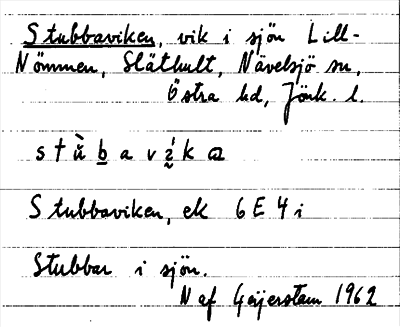 Stubbaviken, vik i sjön Lill-
Nömmen, Släthult, Nävelsjö sn,
Östra hd, Jönk. l.
s t ù b a v í k a
Stubbaviken, ek 6E4i
Stubbar i sjön.
N af Geijerstam 1962